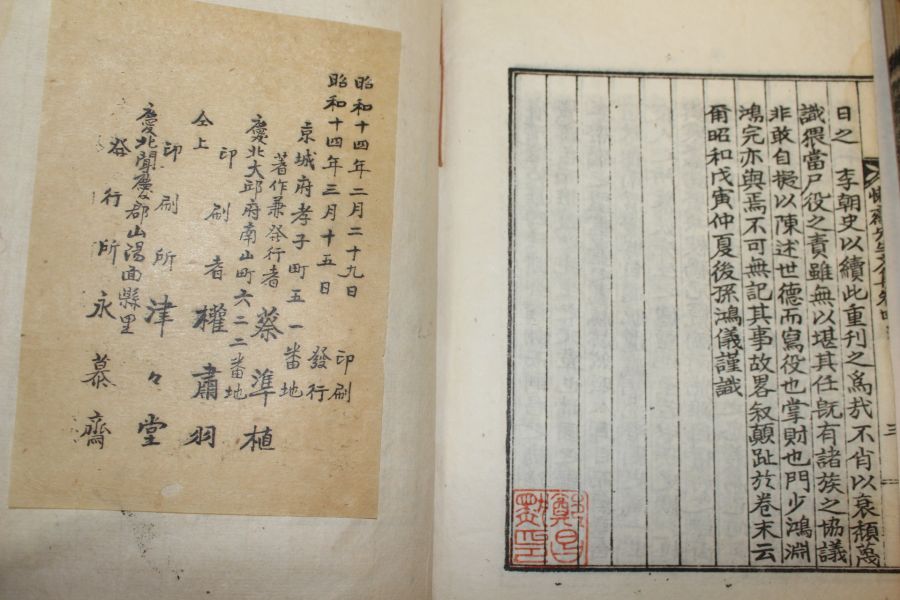 日之 李朝史以續此重刊之爲我不肖以衰頹蔑
識猥當尸役之責雖無以堪其任旣有諸族之協議
非敢自擬以陳述世德而寫役也掌財也門少鴻淵
鴻完亦與焉不可無記其事故畧叙顚趾於卷末云
爾昭和戊寅仲夏後孫鴻儀謹識
三
昭和十四年二月二十九日 印刷
昭和十四年三月十五日 發行
京城府孝子町五一番地
著作兼發行者 蔡準植
慶北大邱府南山町六二二番地
印刷者 權肅羽
仝上
印刷所 津々堂
慶北聞慶郡山陽面縣里
發行所 永慕齋